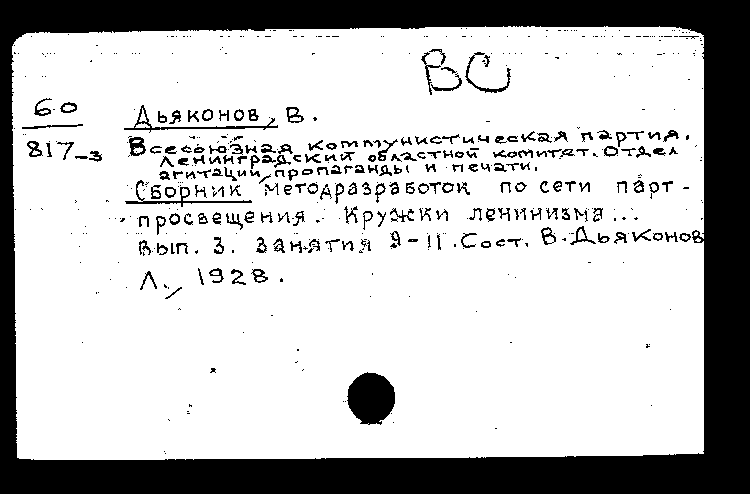 ВС
60
817-3
Дьяконов, В.
Всесоюзная коммунистическая партия.
Ленинградский областной комитет. Отдел
агитации, пропаганды и печати.
Сборник методразработок по сети парт-
просвещения. Кружки ленинизма...
Вып. 3. Занятия 9-11. Сост. В. Дьяконов
Л., 1928.